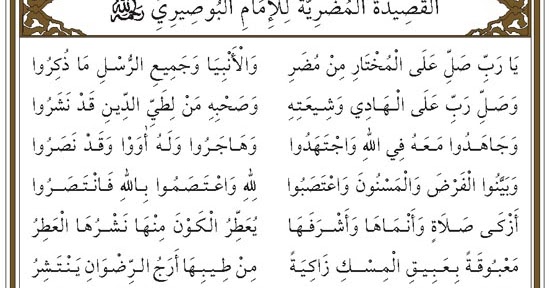 القَصِيدَةُ الْمُضَرِيَّةُ لِلْإِمَامِ البُوصِيرِيِّ
يَا رَبِّ صَلِّ عَلَى الْمُخْتَارِ مِنْ مُضَرِ وَالْأَنْبِيَا وَجَمِيعِ الرُّسْلِ مَا ذُكِرُوا
وَصَلِّ رَبِّ عَلَى الْهَادِي وَشِيعَتِهِ وَصَحْبِهِ مَنْ لِطَيِّ الدِّينِ قَدْ نَشَرُوا
وَجَاهَدُوا مَعَهُ فِي اللهِ وَاجْتَهَدُوا وَهَاجَرُوا وَلَهُ أٰوَوْا وَقَدْ نَصَرُوا
وَبَيَّنُوا الْفَرْضَ وَالْمَسْنُونَ وَاعْتَصَبُوا لِلهِ وَاعْتَصَمُوا بِاللهِ فَانْتَصَرُوا
أَزْكَى صَلَاةٍ وَأَنْمَاهَا وَأَشْرَفَهَا يُعَطِّرُ الْكَوْنَ مِنْهَا نَشْرُهَا الْعَطِرُ
مَعْبُوقَةً بِعَبِيقِ الْمِسْكِ زَاكِيَةً مِنْ طِيبِهَا أَرَجُ الرِّضْوَانِ يَنْتَشِرُ